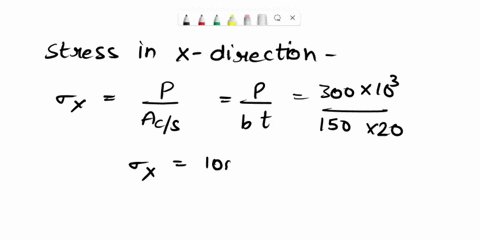 Stress in x-direction -
σx = P / Ac/s = P / b t = 300 × 10³ / 150 × 20
σx = 10